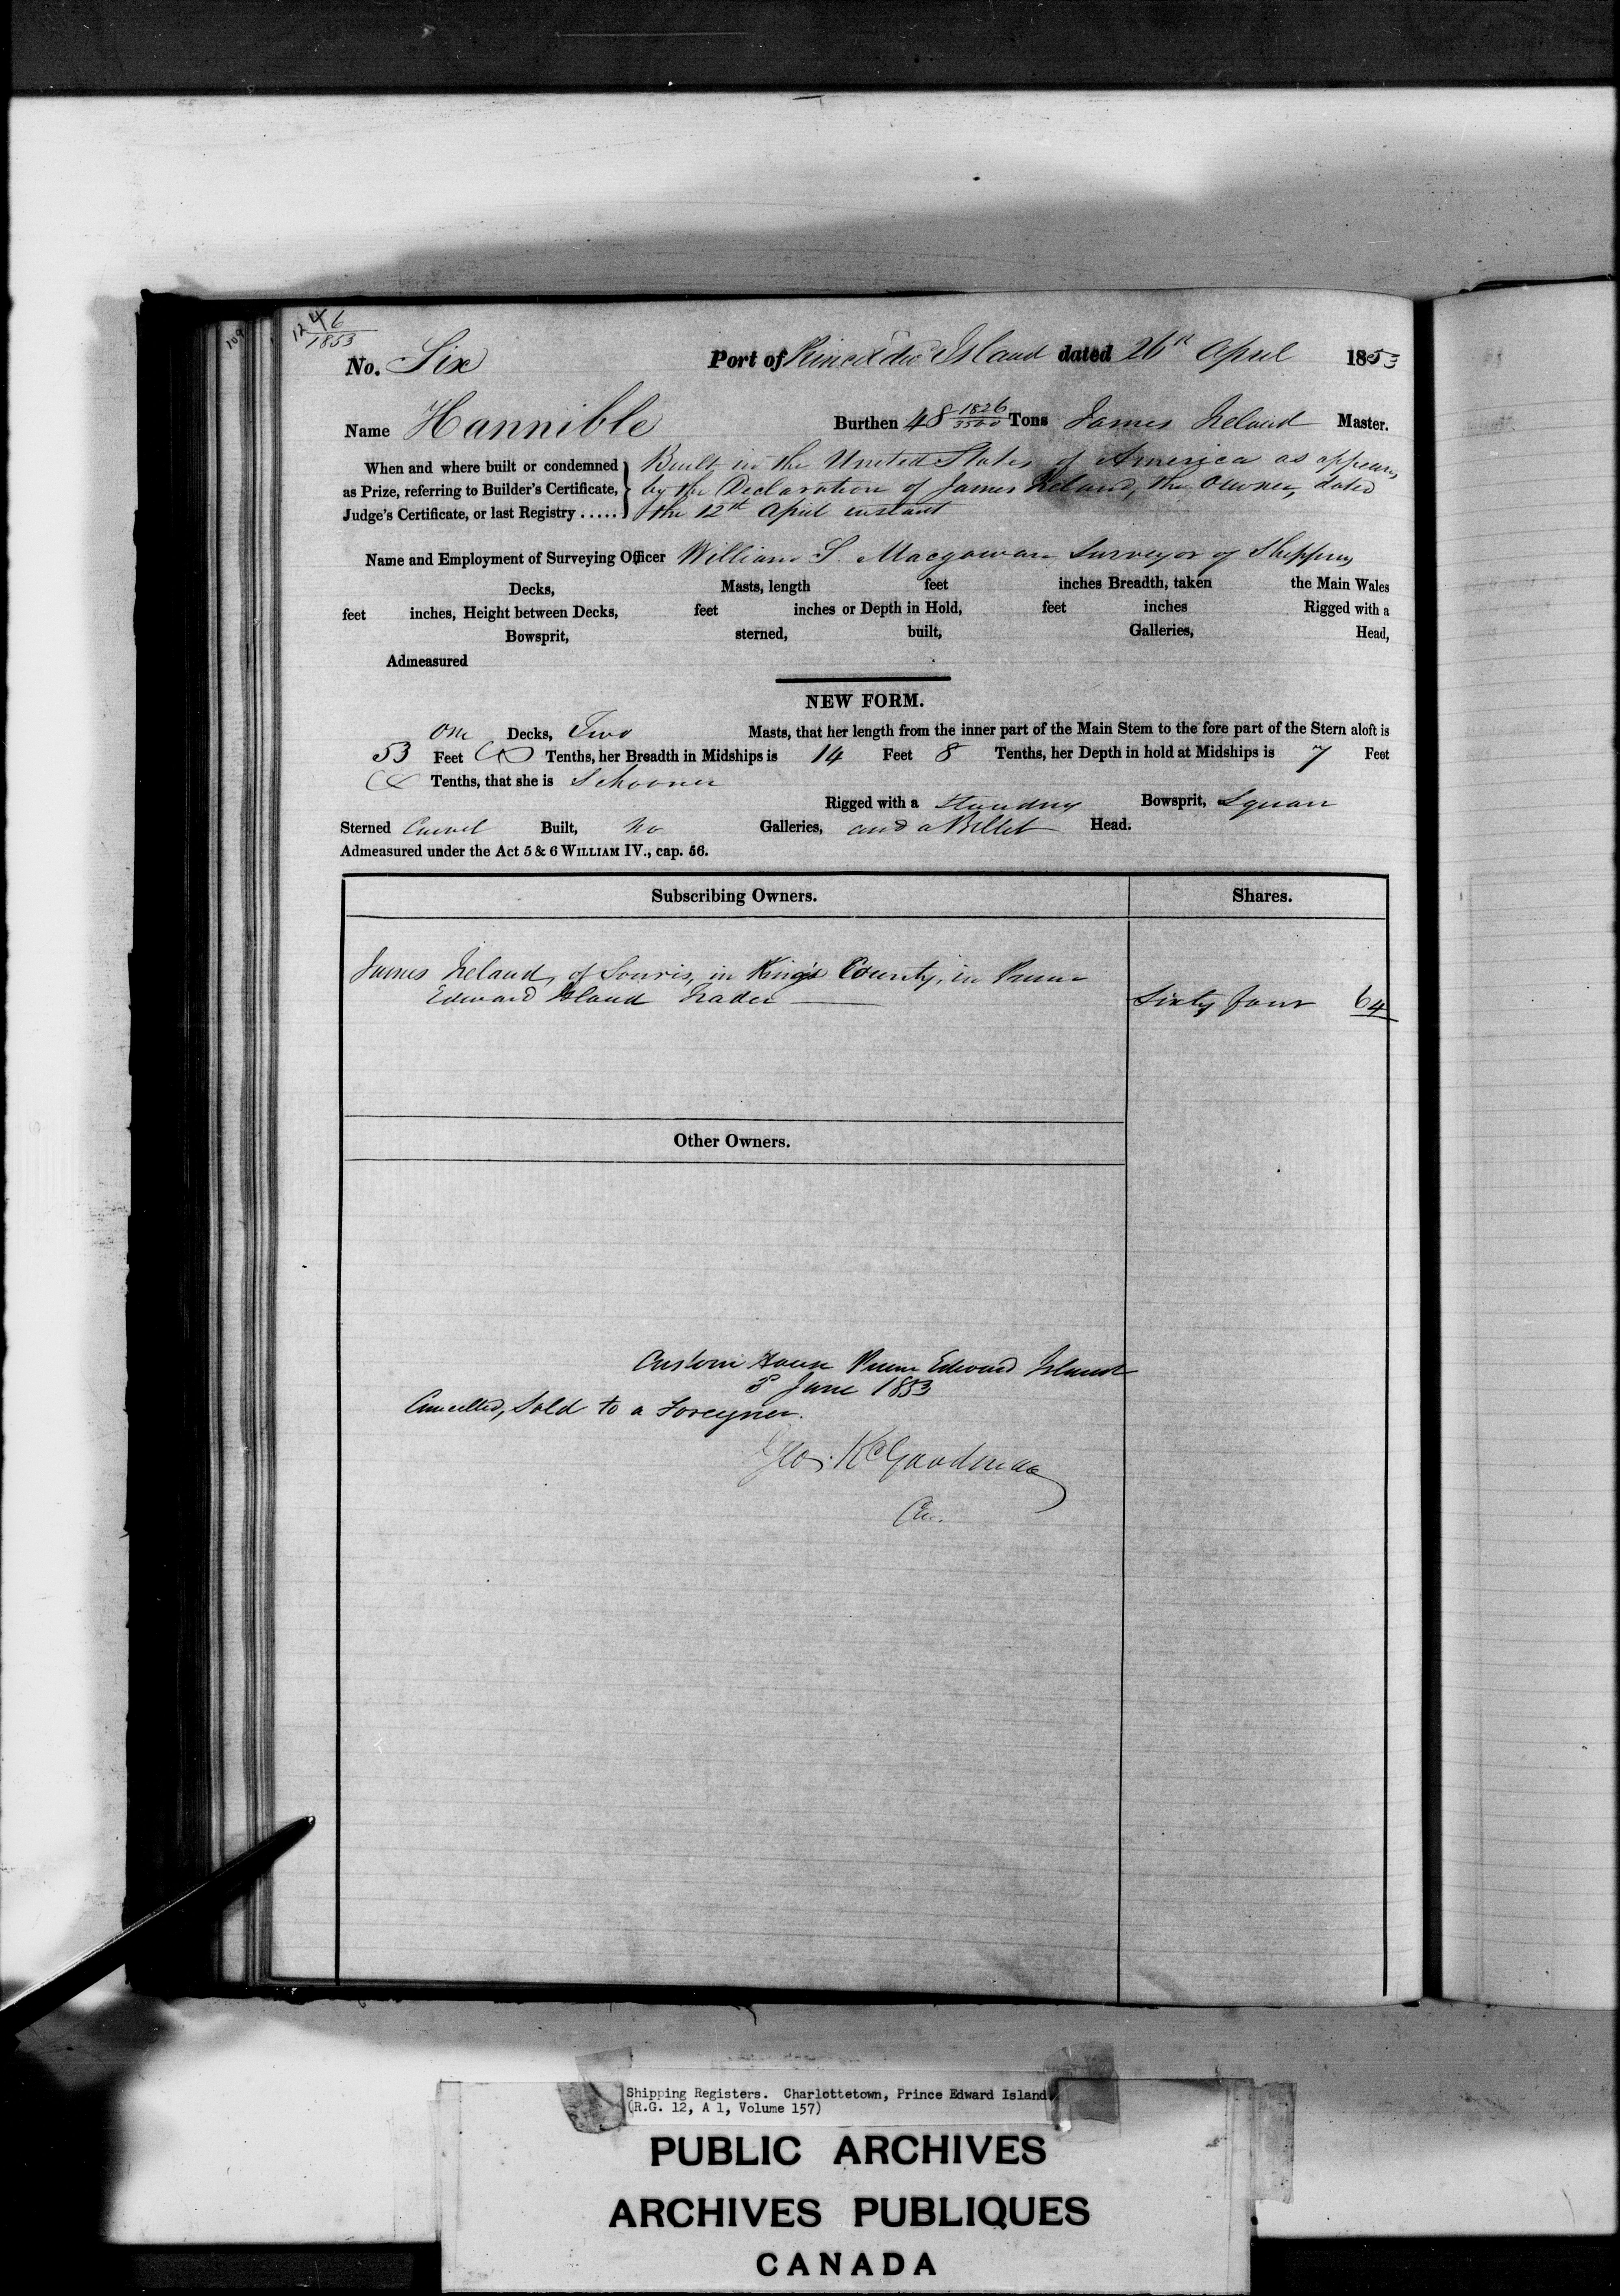 109
12 46
1853
No. Six Port of Prince Edwd Island dated 26th April 1853
Name Hannible Burthen 48 1826/3500 Tons James Ireland Master.
When and where built or condemned Built in the United States of America as appears
as Prize, referring to Builder's Certificate, by the Declaration of James Ireland, the Owner, dated
Judge's Certificate, or last Registry ..... the 12th April instant
Name and Employment of Surveying Officer William S. Macgowan Surveyor of Shipping
Decks, Masts, length feet inches Breadth, taken the Main Wales
feet inches, Height between Decks, feet inches or Depth in Hold, feet inches Rigged with a
Bowsprit, sterned, built, Galleries, Head,
Admeasured
NEW FORM.
One Decks, Two Masts, that her length from the inner part of the Main Stem to the fore part of the Stern aloft is
53 Feet Tenths, her Breadth in Midships is 14 Feet 8 Tenths, her Depth in hold at Midships is 7 Feet
Tenths, that she is Schooner
Rigged with a Standing Bowsprit, Square
Sterned Carvel Built, No Galleries, and a Billet Head.
Admeasured under the Act 5 & 6 WILLIAM IV., cap. 56.
Subscribing Owners. Shares.
James Ireland, of Souris, in King's County, in Prince
Edward Island Trader Sixty four 64
Other Owners.
Custom House Prince Edward Island
3d June 1853
Cancelled, Sold to a Foreigner.
Geo. R. Goodman
Shipping Registers. Charlottetown, Prince Edward Island
(R.G. 12, A 1, Volume 157)
PUBLIC ARCHIVES
ARCHIVES PUBLIQUES
CANADA